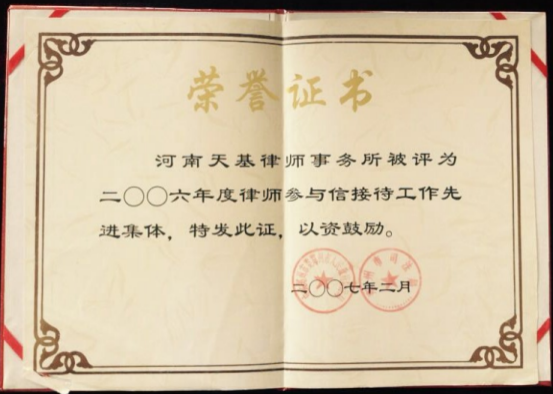 荣誉证书
河南天基律师事务所被评为
二〇〇六年度律师参与信接待工作先
进集体，特发此证，以资鼓励。
二〇〇七年二月